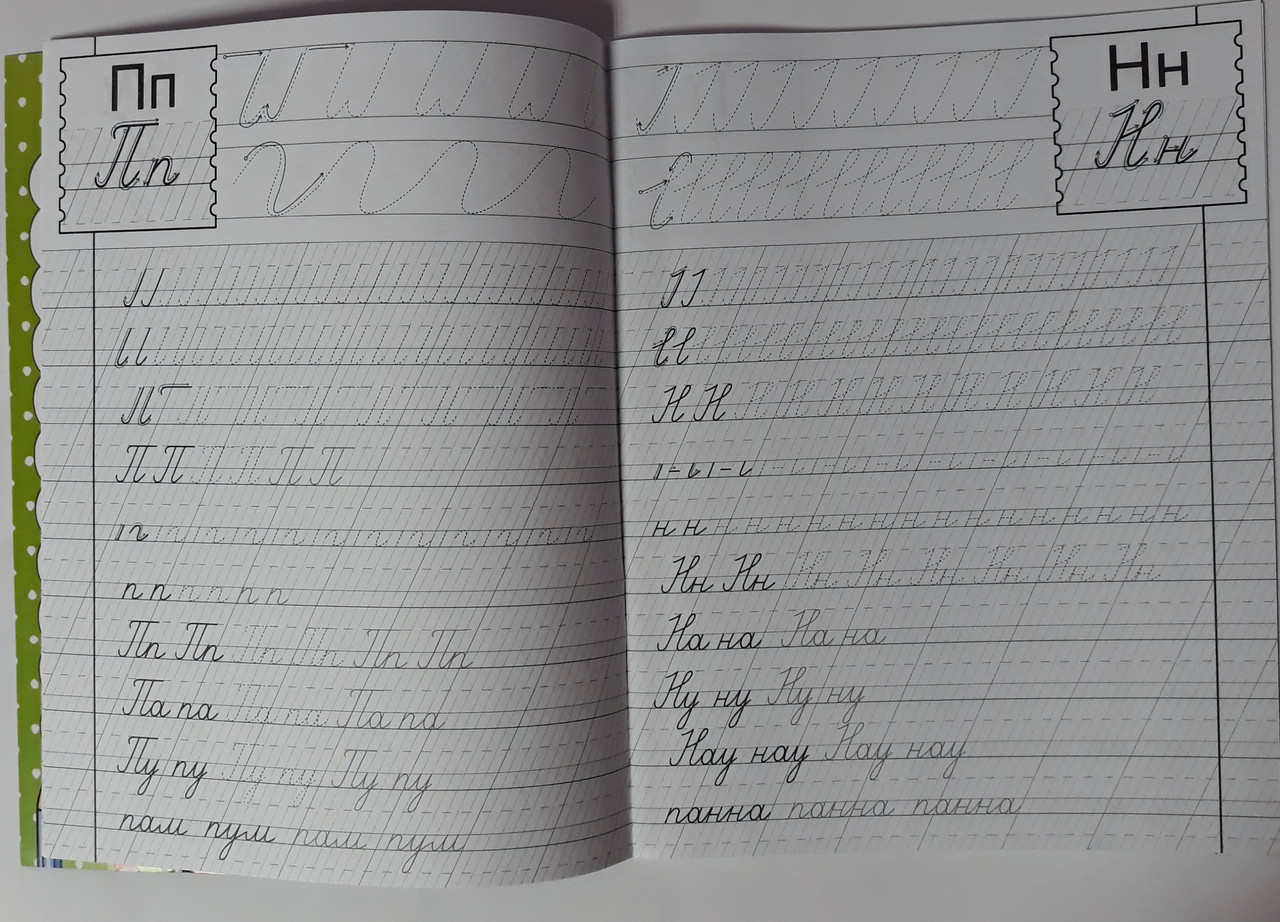 Пп
Пп
П П П П П П
п п п п п п
Пп Пп Пп Пп Пп Пп
Па па Па па Па па
Пу пу Пу пу Пу пу
пам пум пам пум
Нн
Нн
Н Н Н Н Н Н Н Н Н Н Н
н н н н н н н н н н н н н н н н н
Нн Нн Нн Нн Нн Нн Нн Нн
На на На на
Ну ну Ну ну
Нау нау Нау нау
панна панна панна